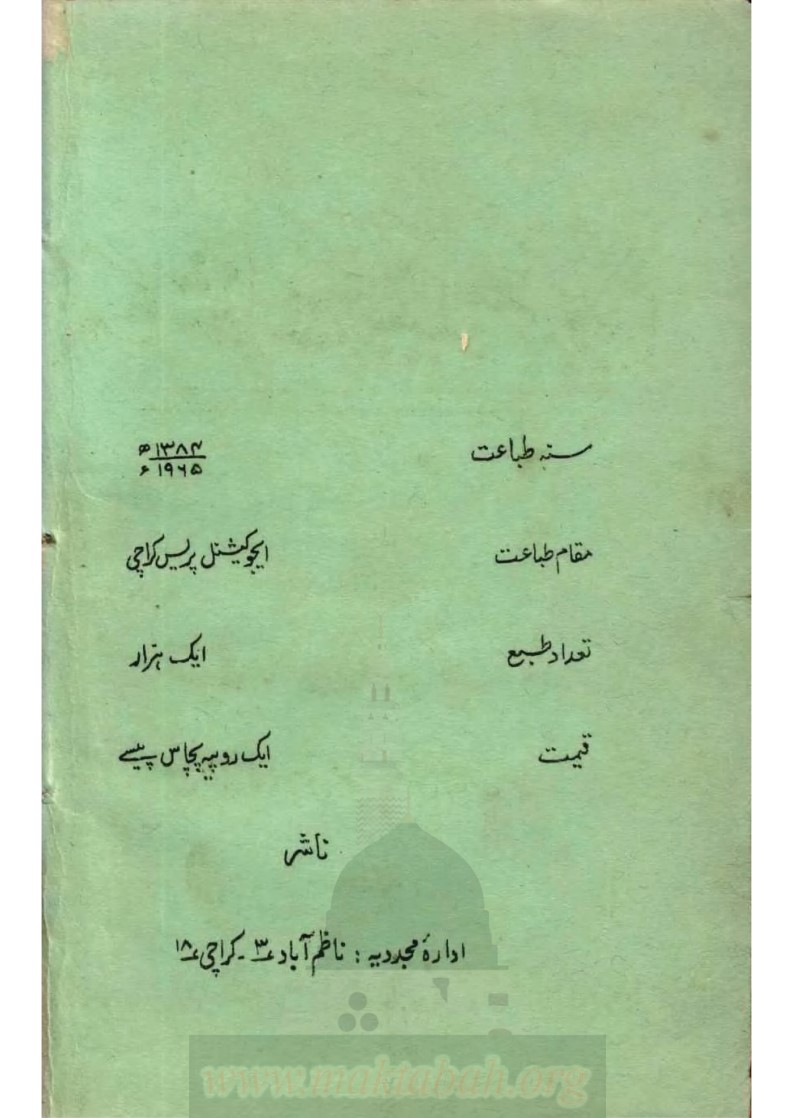 سنہ طباعت ۱۳۸۴ھ / ۱۹۶۵ء
مقام طباعت ایجوکیشنل پریس کراچی
تعداد طبع ایک ہزار
قیمت ایک روپیہ پچاس پیسے
ناشر
ادارۂ مجددیہ : ناظم آباد ۳ - کراچی ۱۸
www.maktabah.org